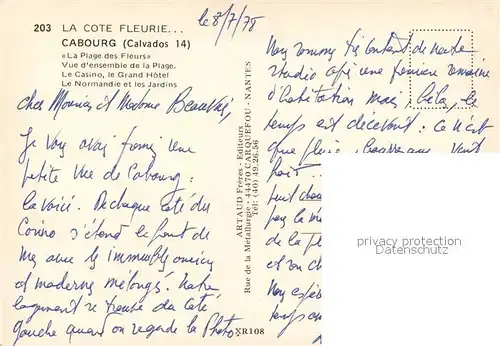 203 LA COTE FLEURIE...
CABOURG (Calvados 14)
«La Plage des Fleurs»
Vue d'ensemble de la Plage.
Le Casino, le Grand Hôtel
Le Normandie et les Jardins
le 8/7/78
cher Monsieur et Madame Beauvais,
Je vous avais promis une
petite vue de Cabourg:
la voici. De chaque côté du
Casino s'étend le front de
mer avec les immeubles anciens
et modernes mélangés. Notre
logement se trouve du côté
gauche quand on regarde la Photo.
ARTAUD Frères - Editeurs
Rue de la Métallurgie - 44470 CARQUEFOU - NANTES
Tél: (40) 49.26.56
XR108
Nous sommes très content de notre
studio après une première semaine
d'habitation mais, hélas, le
temps est décevant: ce n'est
que pluie, vent
froid...
peut
par la
de la
et on
Nous
temps
privacy protection
Datenschutz